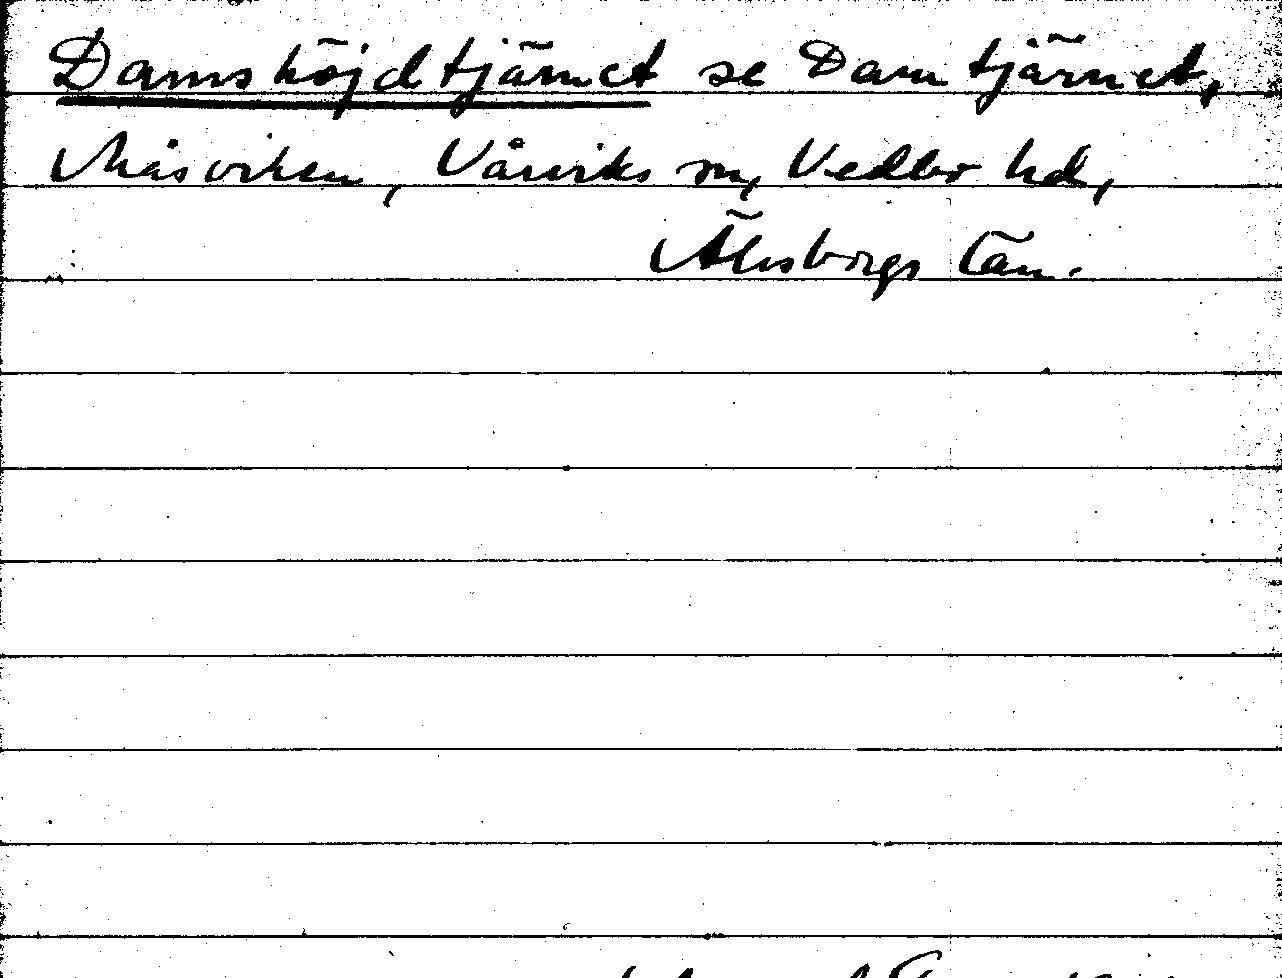 Damshöjdtjärnet se Damtjärnet,
Måsviken, Vårviks sn, Vedbo hd,
Älvsborgs län.